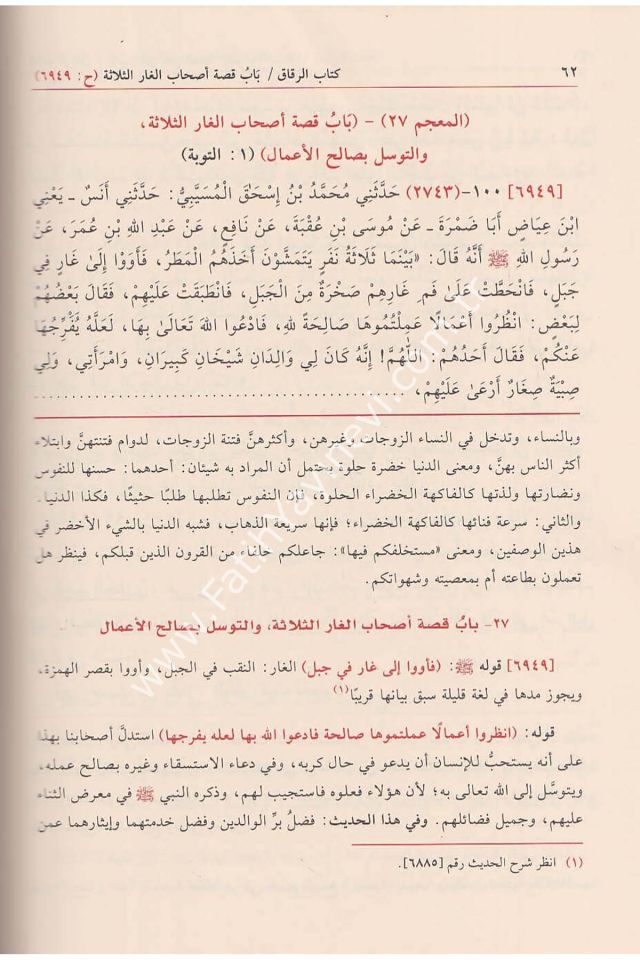 ٦٢ كتاب الرقاق / بَابُ قصة أصحاب الغار الثلاثة (ح: ٦٩٤٩)
(المعجم ٢٧) - (بَابُ قصة أصحاب الغار الثلاثة،
والتوسل بصالح الأعمال) (١ : التوبة)
[٦٩٤٩] ١٠٠-(٢٧٤٣) حَدَّثَنِي مُحَمَّدُ بْنُ إِسْحَقَ الْمُسَيَّبِيُّ: حَدَّثَنِي أَنَسٌ ـ يَعْنِي
ابْنَ عِيَاضٍ أَبَا ضَمْرَةَ ـ عَنْ مُوسَى بْنِ عُقْبَةَ، عَنْ نَافِعٍ، عَنْ عَبْدِ اللهِ بْنِ عُمَرَ، عَنْ
رَسُولِ اللهِ ﷺ أَنَّهُ قَالَ: «بَيْنَمَا ثَلَاثَةُ نَفَرٍ يَتَمَشَّوْنَ أَخَذَهُمُ الْمَطَرُ، فَأَوَوْا إِلَىٰ غَارٍ فِي
جَبَلٍ، فَانْحَطَّتْ عَلَىٰ فَمِ غَارِهِمْ صَخْرَةٌ مِنَ الْجَبَلِ، فَانْطَبَقَتْ عَلَيْهِمْ، فَقَالَ بَعْضُهُمْ
لِبَعْضٍ: انْظُرُوا أَعْمَالًا عَمِلْتُمُوهَا صَالِحَةً لِلهِ، فَادْعُوا اللهَ تَعَالَىٰ بِهَا، لَعَلَّهُ يُفَرِّجُهَا
عَنْكُمْ، فَقَالَ أَحَدُهُمْ: اللّٰهُمَّ! إِنَّهُ كَانَ لِي وَالِدَانِ شَيْخَانِ كَبِيرَانِ، وَامْرَأَتِي، وَلِي
صِبْيَةٌ صِغَارٌ أَرْعَىٰ عَلَيْهِمْ، ......................................................
وبالنساء، وتدخل في النساء الزوجات وغيرهن، وأكثرهنَّ فتنة الزوجات، لدوام فتنتهنَّ وابتلاء
أكثر الناس بهنَّ، ومعنى الدنيا خضرة حلوة يحتمل أن المراد به شيئان: أحدهما: حسنها للنفوس
ونضارتها ولذتها كالفاكهة الخضراء الحلوة، فإن النفوس تطلبها طلبًا حثيثًا، فكذا الدنيا.
والثاني: سرعة فنائها كالفاكهة الخضراء؛ فإنها سريعة الذهاب، فشبه الدنيا بالشيء الأخضر في
هذين الوصفين، ومعنى «مستخلفكم فيها»: جاعلكم خلفاء من القرون الذين قبلكم، فينظر هل
تعملون بطاعته أم بمعصيته وشهواتكم.
٢٧- بابُ قصة أصحاب الغار الثلاثة، والتوسل بصالح الأعمال
[٦٩٤٩] قوله ﷺ: (فأووا إلى غار في جبل) الغار: النقب في الجبل، وأووا بقصر الهمزة،
ويجوز مدها في لغة قليلة سبق بيانها قريبًا(١)
قوله: (انظروا أعمالًا عملتموها صالحة فادعوا الله بها لعله يفرجها) استدلَّ أصحابنا بهذا
على أنه يستحبُّ للإنسان أن يدعو في حال كربه، وفي دعاء الاستسقاء وغيره بصالح عمله،
ويتوسَّل إلى الله تعالى به؛ لأن هؤلاء فعلوه فاستجيب لهم، وذكره النبي ﷺ في معرض الثناء
عليهم، وجميل فضائلهم. وفي هذا الحديث: فضلُ برِّ الوالدين وفضل خدمتهما وإيثارهما عمن
(١) انظر شرح الحديث رقم [٦٨٨٥].
www.FatihYayinevi.com.tr